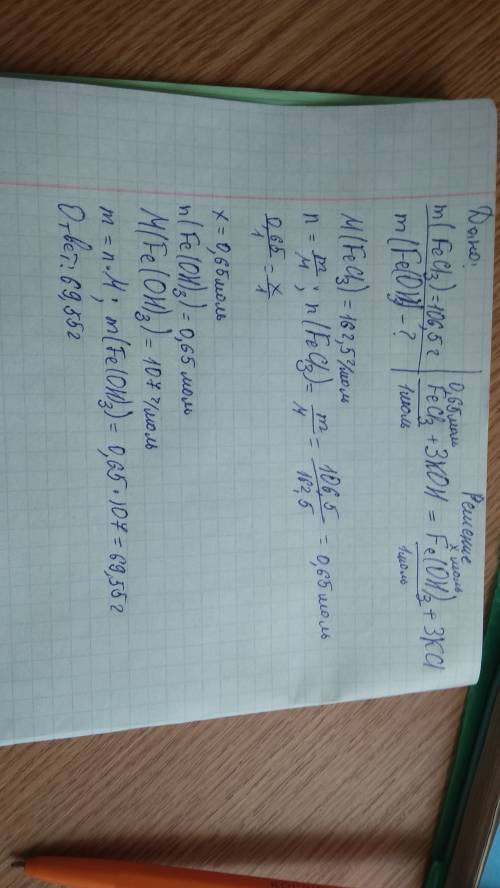 Дано: Решение
m(FeCl₃)=106,5г 0,65моль x моль
FeCl₃ + 3KOH = Fe(OH)₃ + 3KCl
m(Fe(OH)₃ - ? 1моль 1моль
M(FeCl₃) = 162,5г/моль
n = m/M ; n(FeCl₃) = m/M = 106,5/162,5 = 0,65 моль
0,65/1 = x/1
x = 0,65моль
n(Fe(OH)₃) = 0,65 моль
M(Fe(OH)₃) = 107 г/моль
m = n·M ; m(Fe(OH)₃) = 0,65 · 107 = 69,55 г
Ответ: 69,55 г